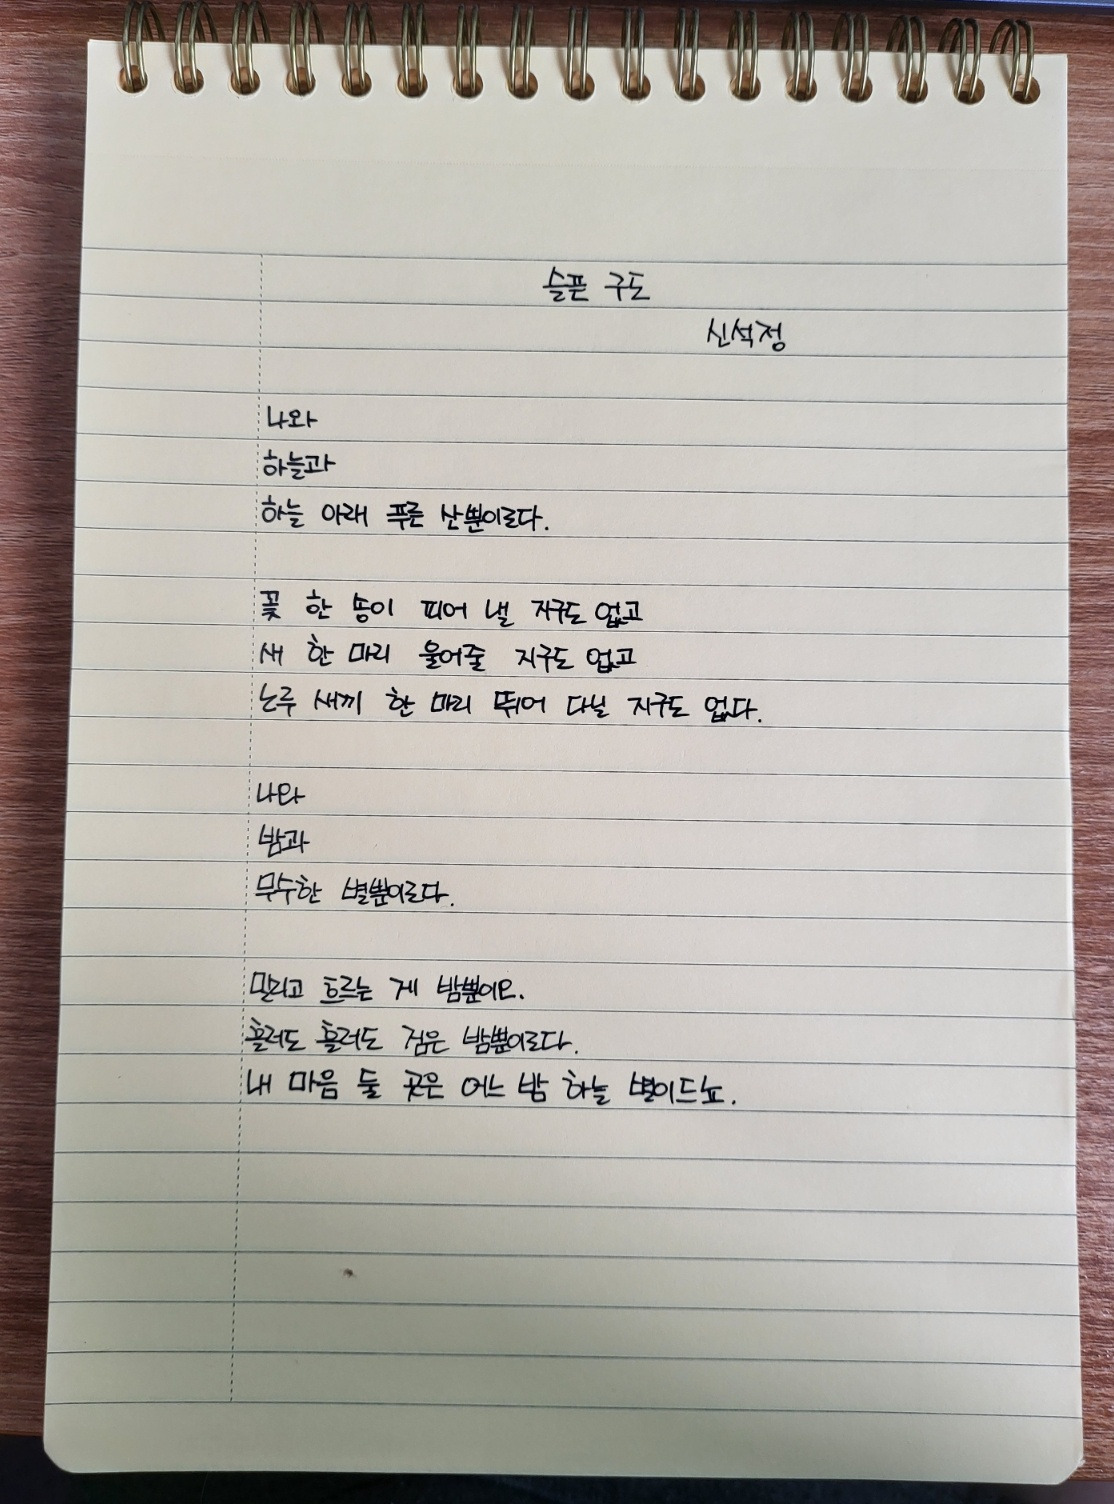 슬픈 구도
신석정
나와
하늘과
하늘 아래 푸른 산뿐이로다.
꽃 한 송이 피어 낼 지구도 없고
새 한 마리 울어줄 지구도 없고
노루 새끼 한 마리 뛰어 다닐 지구도 없다.
나와
밤과
무수한 별뿐이로다.
밀리고 흐르는 게 밤뿐이오.
흘러도 흘러도 검은 밤뿐이로다.
내 마음 둘 곳은 어느 밤 하늘 별이드뇨.